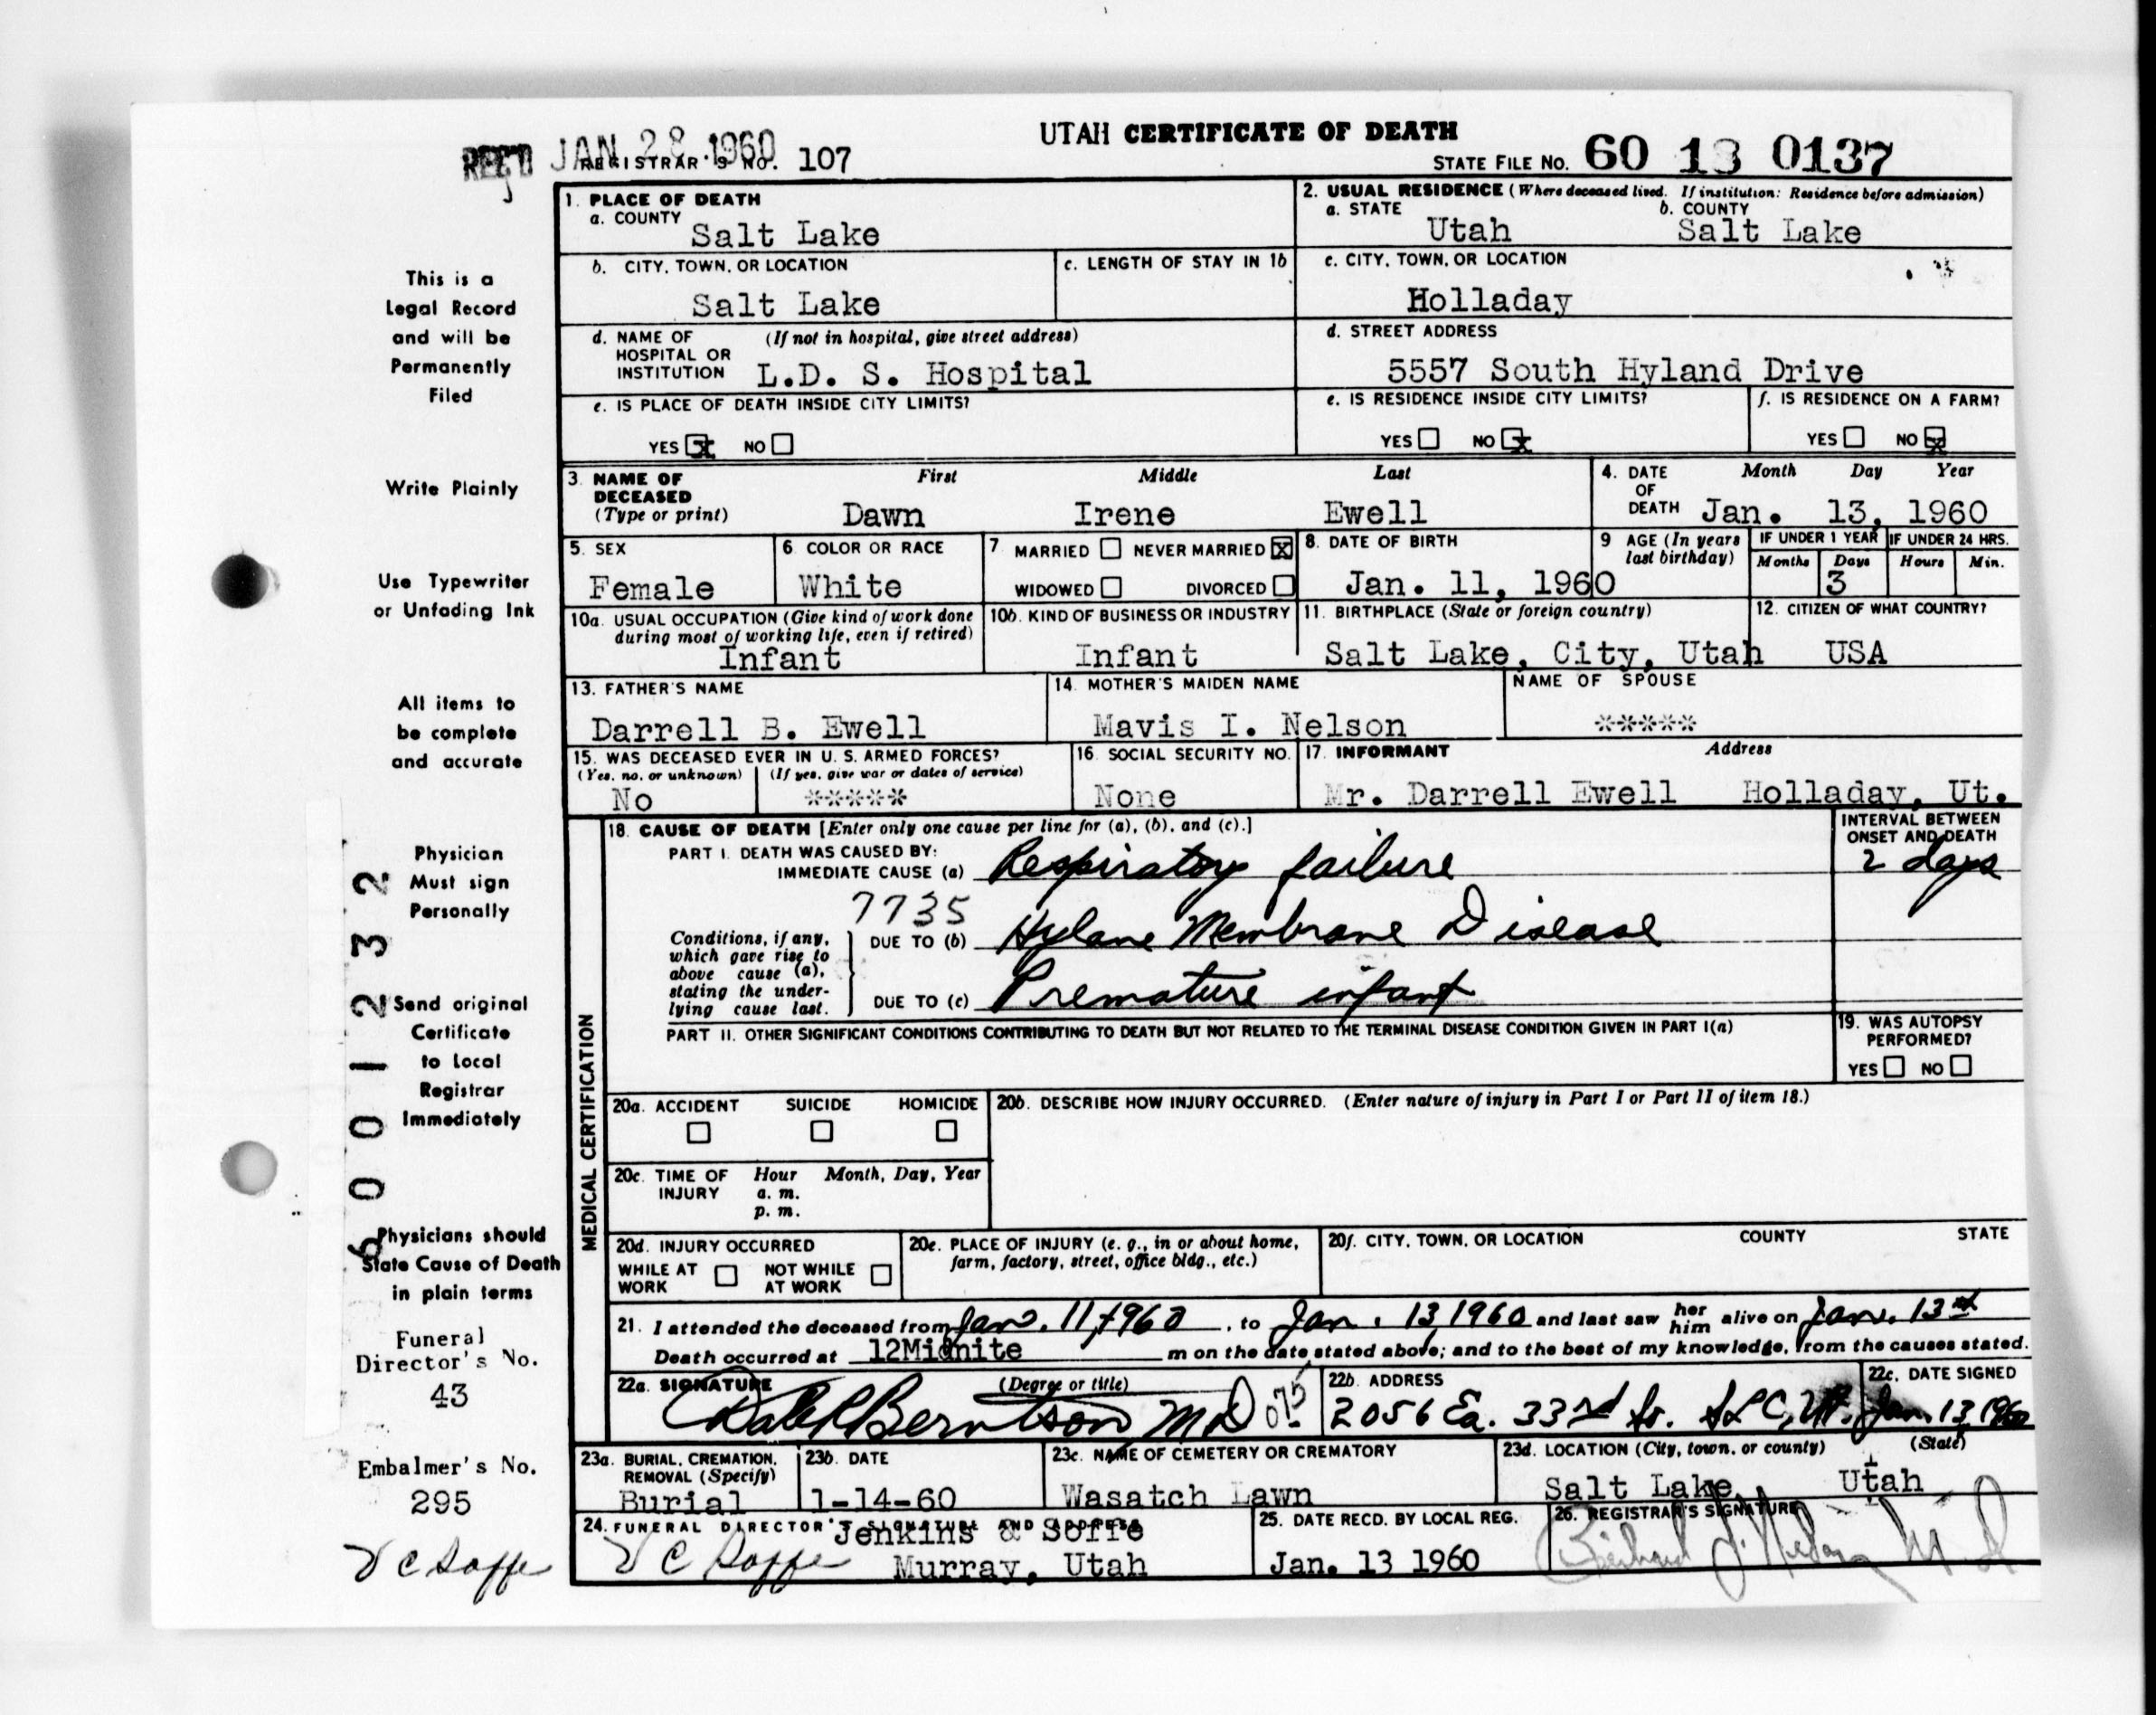 UTAH CERTIFICATE OF DEATH
REC'D JAN 28 1960
REGISTRAR'S NO. 107
STATE FILE NO. 60 18 0137
1. PLACE OF DEATH
a. COUNTY
Salt Lake
2. USUAL RESIDENCE (Where deceased lived. If institution: Residence before admission)
a. STATE b. COUNTY
Utah Salt Lake
b. CITY, TOWN, OR LOCATION
Salt Lake
c. LENGTH OF STAY IN 1b
c. CITY, TOWN, OR LOCATION
Holladay
d. NAME OF (If not in hospital, give street address)
HOSPITAL OR
INSTITUTION L.D. S. Hospital
d. STREET ADDRESS
5557 South Hyland Drive
e. IS PLACE OF DEATH INSIDE CITY LIMITS?
YES X NO
e. IS RESIDENCE INSIDE CITY LIMITS?
YES NO X
f. IS RESIDENCE ON A FARM?
YES NO X
3. NAME OF DECEASED (Type or print)
First Middle Last
Dawn Irene Ewell
4. DATE OF DEATH
Month Day Year
Jan. 13, 1960
5. SEX
Female
6. COLOR OR RACE
White
7. MARRIED NEVER MARRIED X
WIDOWED DIVORCED
8. DATE OF BIRTH
Jan. 11, 1960
9 AGE (In years last birthday)
IF UNDER 1 YEAR IF UNDER 24 HRS.
Months Days Hours Min.
3
10a. USUAL OCCUPATION (Give kind of work done
during most of working life, even if retired)
Infant
10b. KIND OF BUSINESS OR INDUSTRY
Infant
11. BIRTHPLACE (State or foreign country)
Salt Lake, City, Utah
12. CITIZEN OF WHAT COUNTRY?
USA
13. FATHER'S NAME
Darrell B. Ewell
14. MOTHER'S MAIDEN NAME
Mavis I. Nelson
NAME OF SPOUSE
*****
15. WAS DECEASED EVER IN U. S. ARMED FORCES?
(Yes, no, or unknown) (If yes, give war or dates of service)
No *****
16. SOCIAL SECURITY NO.
None
17. INFORMANT Address
Mr. Darrell Ewell Holladay, Ut.
MEDICAL CERTIFICATION
18. CAUSE OF DEATH [Enter only one cause per line for (a), (b), and (c).]
INTERVAL BETWEEN
ONSET AND DEATH
PART I. DEATH WAS CAUSED BY:
IMMEDIATE CAUSE (a) Respiratory failure
2 days
7735
Conditions, if any,
which gave rise to
above cause (a),
stating the under-
lying cause last.
DUE TO (b) Hylane Membrane Disease
DUE TO (c) Premature infant
PART II. OTHER SIGNIFICANT CONDITIONS CONTRIBUTING TO DEATH BUT NOT RELATED TO THE TERMINAL DISEASE CONDITION GIVEN IN PART I(a)
19. WAS AUTOPSY
PERFORMED?
YES NO
20a. ACCIDENT SUICIDE HOMICIDE
20b. DESCRIBE HOW INJURY OCCURRED. (Enter nature of injury in Part I or Part II of item 18.)
20c. TIME OF INJURY
Hour Month, Day, Year
a. m.
p. m.
20d. INJURY OCCURRED
WHILE AT WORK NOT WHILE AT WORK
20e. PLACE OF INJURY (e. g., in or about home,
farm, factory, street, office bldg., etc.)
20f. CITY, TOWN, OR LOCATION COUNTY STATE
21. I attended the deceased from Jan. 11, 1960, to Jan. 13 1960 and last saw her him alive on Jan. 13th
Death occurred at 12Midnite m on the date stated above; and to the best of my knowledge, from the causes stated.
22a. SIGNATURE (Degree or title)
Dale R Berntson MD
22b. ADDRESS
2056 Ea. 33rd So. SLC, Ut.
22c. DATE SIGNED
Jan. 13 1960
23a. BURIAL, CREMATION,
REMOVAL (Specify)
Burial
23b. DATE
1-14-60
23c. NAME OF CEMETERY OR CREMATORY
Wasatch Lawn
23d. LOCATION (City, town, or county) (State)
Salt Lake Utah
24. FUNERAL DIRECTOR'S SIGNATURE AND ADDRESS
Jenkins & Soffe
V C Soffe Murray, Utah
25. DATE RECD. BY LOCAL REG.
Jan. 13 1960
26. REGISTRAR'S SIGNATURE
This is a
Legal Record
and will be
Permanently
Filed
Write Plainly
Use Typewriter
or Unfading Ink
All items to
be complete
and accurate
Physician
Must sign
Personally
Send original
Certificate
to Local
Registrar
Immediately
Physicians should
State Cause of Death
in plain terms
Funeral
Director's No.
43
Embalmer's No.
295
V C Soffe